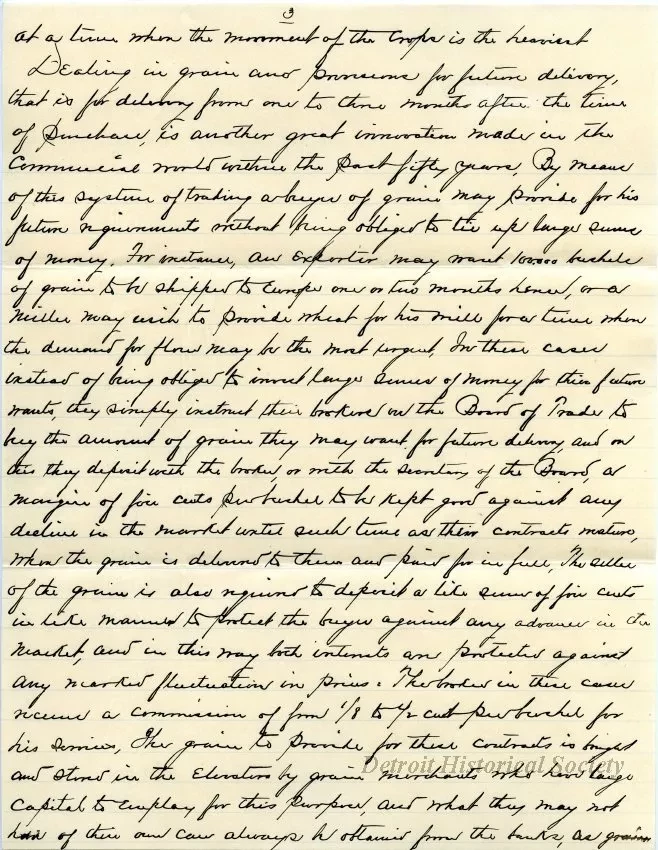 3
at a time when the movement of the Crops is the heaviest
Dealing in grain and provisions for future delivery,
that is for delivery from one to three months after the time
of purchase, is another great innovation made in the
Commercial world within the past fifty years, By means
of this system of trading a buyer of grain may provide for his
future requirements without being obliged to tie up large sums
of money. For instance, an Exporter may want 100.000 bushels
of grain to be shipped to Europe one or two months hence, or a
Miller may wish to provide wheat for his mill for a time when
the demand for flour may be the most urgent, In these cases
instead of being obliged to invest large sums of money for their future
wants, they simply instruct their brokers on the Board of Trade to
buy the amount of grain they may want for future delivery, and on
this they deposit with the broker, or with the secretary of the Board, a
margin of five cents per bushel to be kept good against any
decline in the market until such time as their contracts mature,
when the grain is delivered to them and paid for in full, The seller
of the grain is also required to deposit a like sum of five cents
in like manner to protect the buyer against any advance in the
market, and in this way both interests are protected against
any marked fluctuation in prices: The broker in these cases
receives a commission of from 1/8 to 1/2 cent per bushel for
his services, The grain to provide for these contracts is bought
and stored in the Elevators by grain merchants who have large
Capital to employ for this purpose, and what they may not
have of their own can always be obtained from the banks, as grain
Detroit Historical Society